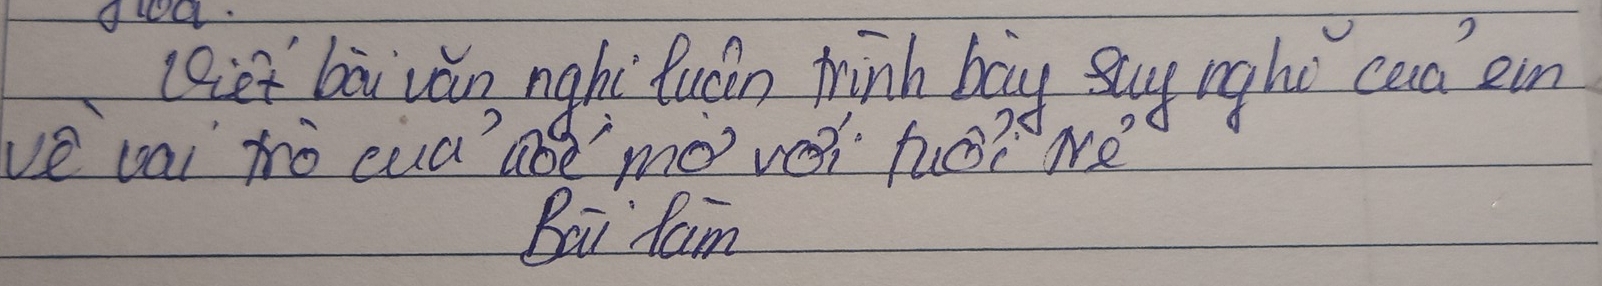 Viết bài văn nghị luận trình bày suy nghĩ của em
về vai trò của ước mơ với tuổi trẻ
Bài làm